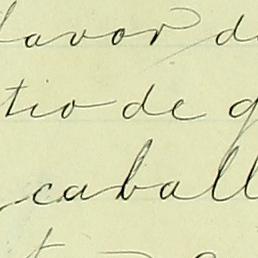 favor d
tio de g
caball